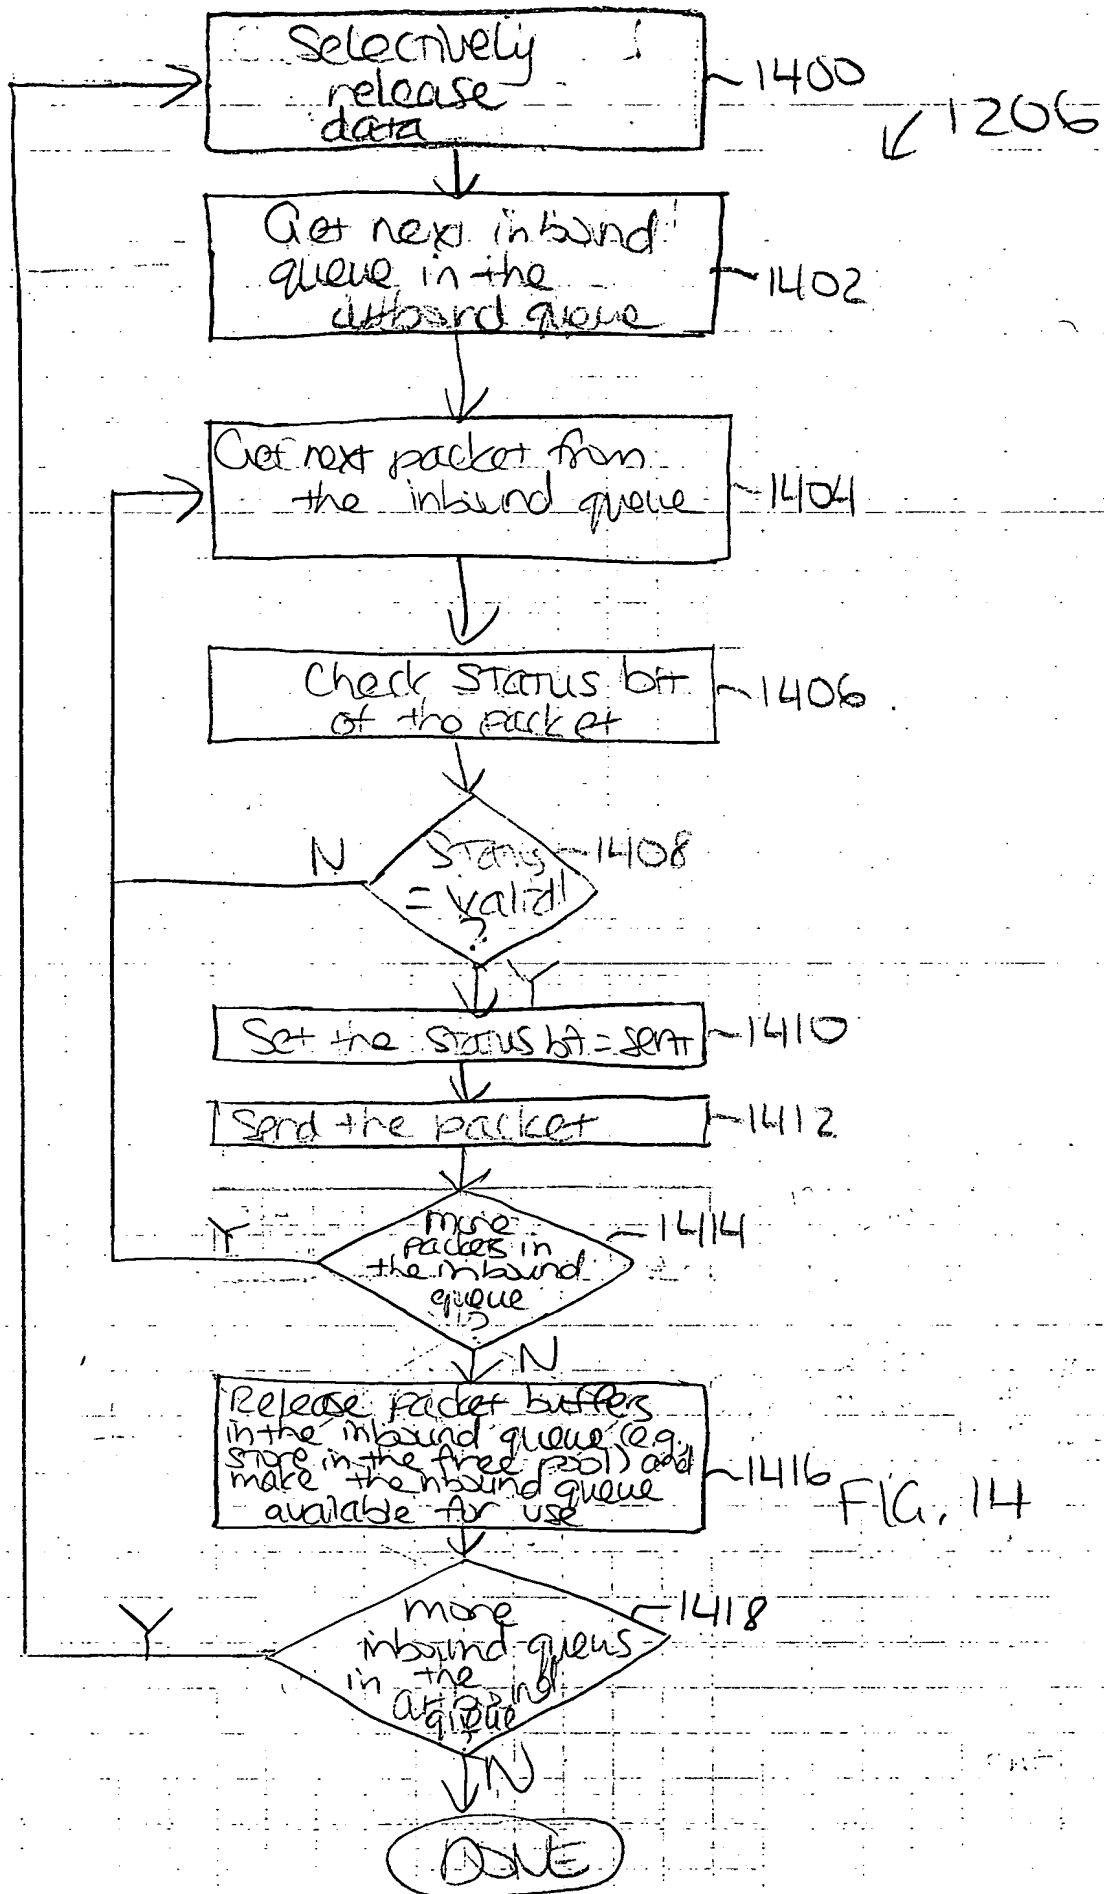 Selectively
release
data
1400
1206
Get next inbound
queue in the
outbound queue
1402
Get next packet from
the inbound queue
1404
Check status bit
of the packet
1406
N
Status
= valid
?
1408
Y
Set the status bit = sent
1410
Send the packet
1412
more
packets in
the inbound
queue
?
1414
Y
N
Release packet buffers
in the inbound queue (e.g.
store in the free pool) and
make the inbound queue
available for use
1416
FIG. 14
more
inbound queus
in the
outbound
queue
?
1418
Y
N
DONE